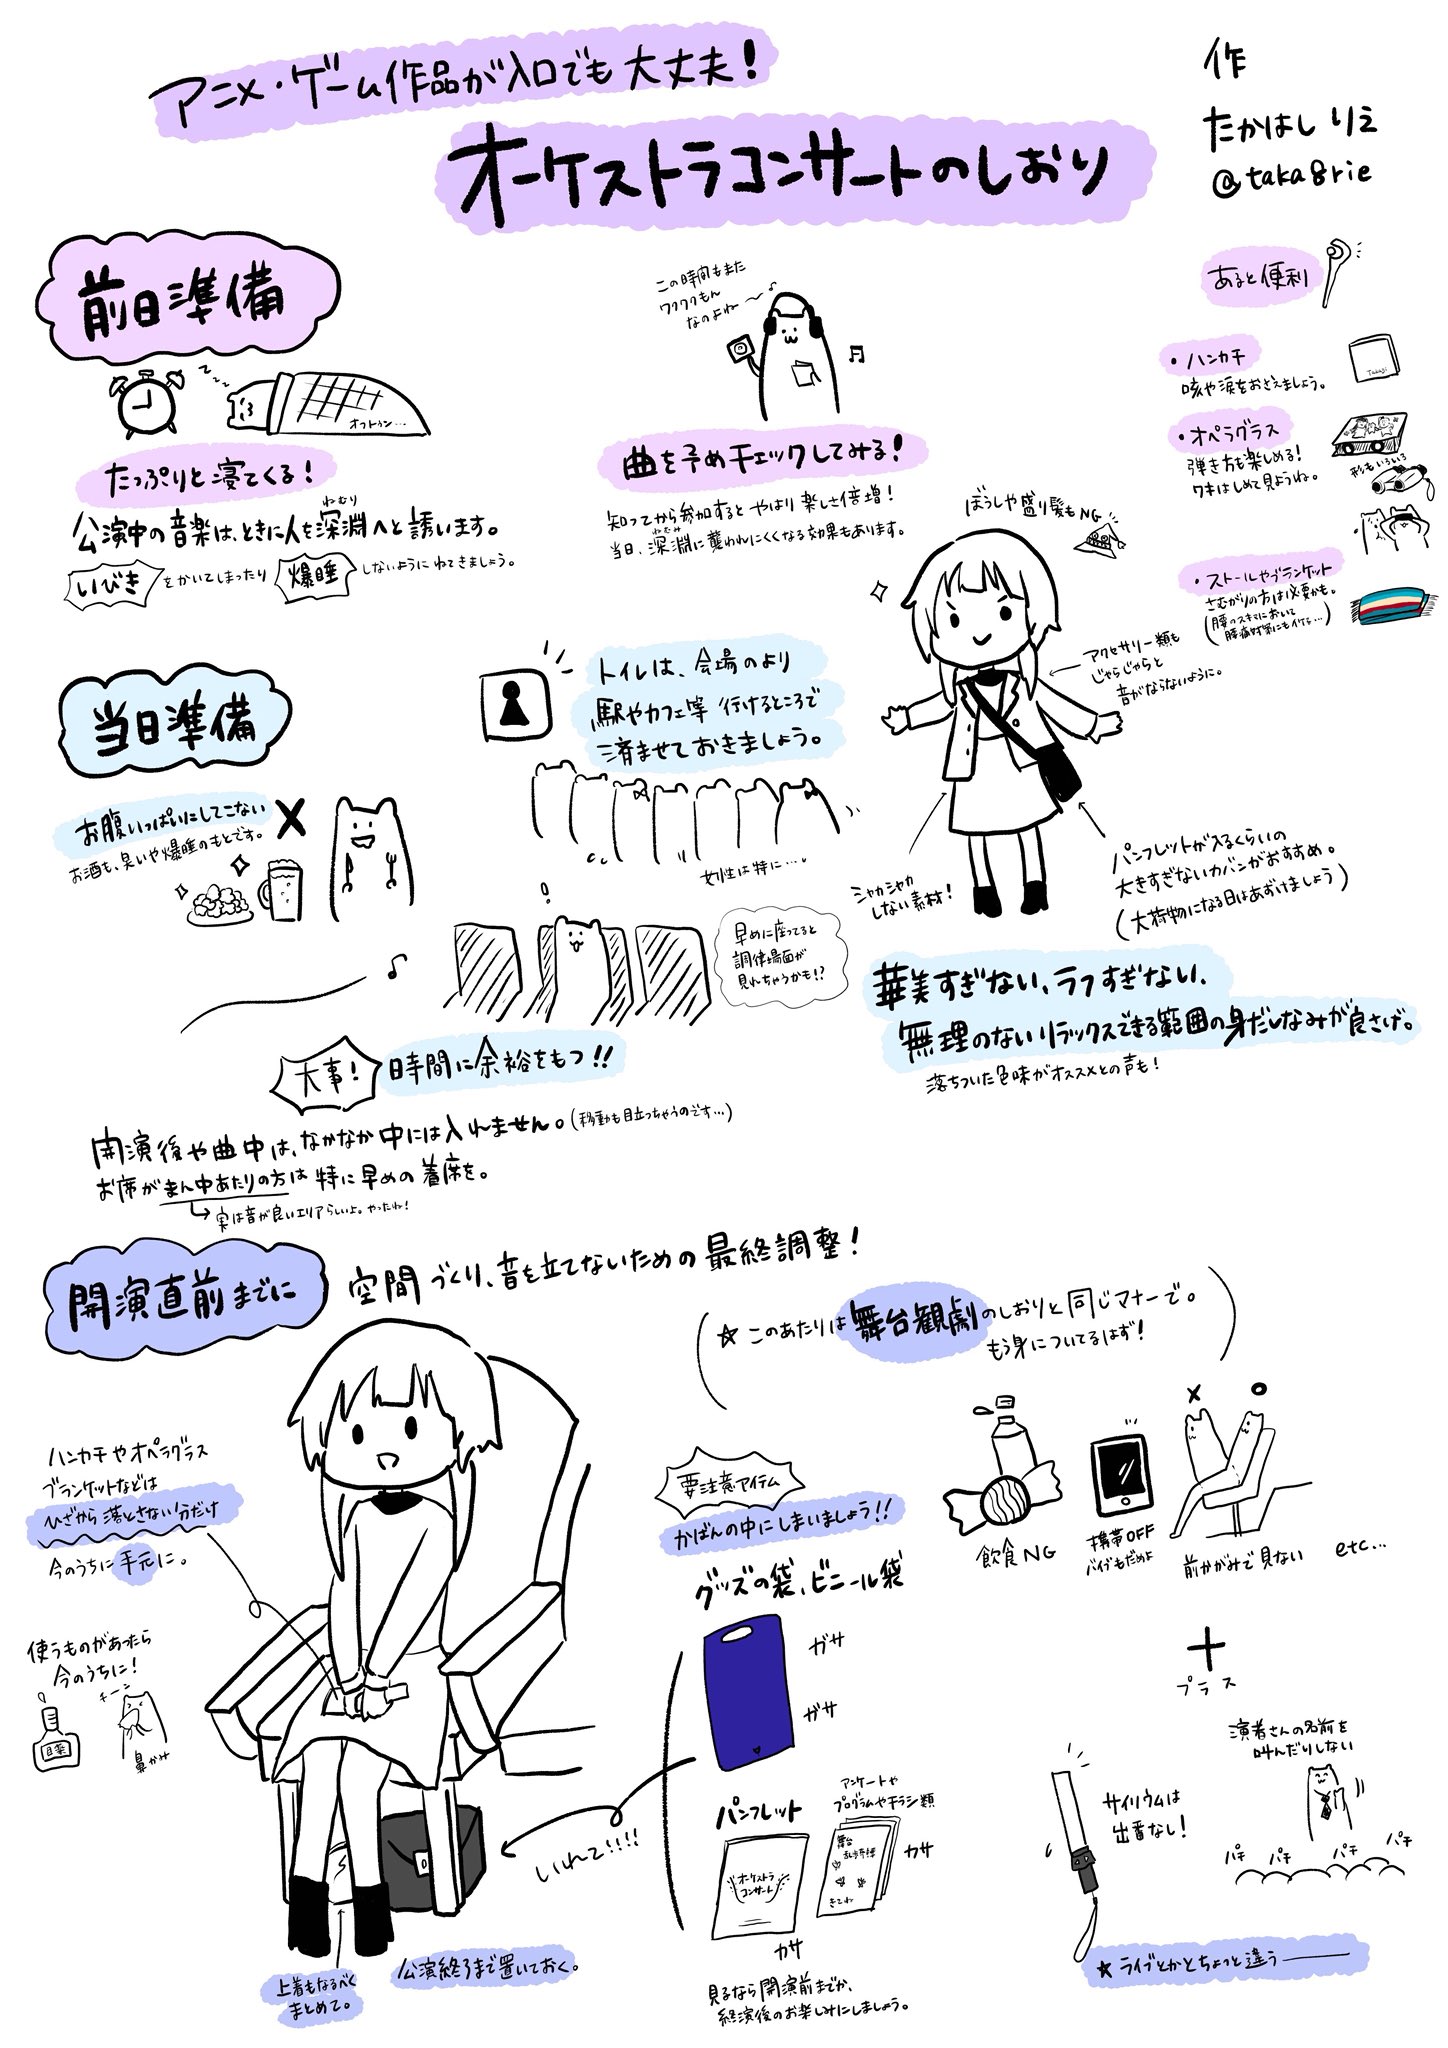 アニメ・ゲーム作品が入口でも大丈夫!
オーケストラコンサートのしおり
作
たかはし りえ
@taka8rie
前日準備
オフトゥン…
たっぷりと寝てくる!
公演中の音楽は、ときに人を深淵へと誘います。
ねむり
いびき をかいてしまったり 爆睡 しないようにねてきましょう。
この時間もまた
ワククもん
なのよね〜♪
曲を予めチェックしてみる!
知ってから参加すると やはり 楽しさ倍増!
当日、深淵に襲われにくくなる効果もあります。
ねむみ
あると便利
・ハンカチ
咳や涙をおさえましょう。
・オペラグラス
弾き方も楽しめる!
ワキはしめて見ようね。
形もいろいろ
・ストールやブランケット
さむがりの方は必要かも。
(腰のスキマにおいて
腰痛対策にもイケる…)
当日準備
お腹いっぱいにしてこない
お酒も、臭いや爆睡のもとです。
トイレは、会場のより
駅やカフェ等 行けるところで
済ませておきましょう。
女性は特に…。
早めに座ってると
調律場面が
見れちゃうかも!?
大事! 時間に余裕をもつ!!
開演後や曲中は、なかなか中には入れません。(移動も目立っちゃうのです…)
お席がまん中あたりの方は特に早めの着席を。
実は音が良いエリアらしいよ。やったね!
ぼうしや盛り髪もNG
アクセサリー類も
じゃらじゃらと
音がならないように。
シャカシャカ
しない素材!
パンフレットが入るくらいの
大きすぎないカバンがおすすめ。
(大荷物になる日はあずけましょう)
華美すぎない、ラフすぎない、
無理のないリラックスできる範囲の身だしなみが良さげ。
落ちついた色味がオススメとの声も!
開演直前までに
空間づくり、音を立てないための最終調整!
☆このあたりは舞台観劇のしおりと同じマナーで。
もう身についてるはず!
ハンカチやオペラグラス
ブランケットなどは
ひざから落とさない分だけ
今のうちに手元に。
使うものがあったら
今のうちに!
目薬
チーン
鼻かみ
上着もなるべく
まとめて。
公演終了まで置いておく。
いれて!!!!
要注意アイテム
かばんの中にしまいましょう!!
グッズの袋、ビニール袋
ガサ
ガサ
パンフレット
オーケストラ
コンサート
カサ
アンケートや
プログラムやチラシ類
舞台
きてね
カサ
見るなら開演前までか、
終演後のお楽しみにしましょう。
飲食NG
携帯OFF
バイブもだめよ
前かがみで見ない
etc…
プラス
サイリウムは
出番なし!
演者さんの名前を
叫んだりしない
パチ パチ パチ パチ
☆ライブとかとちょっと違う――